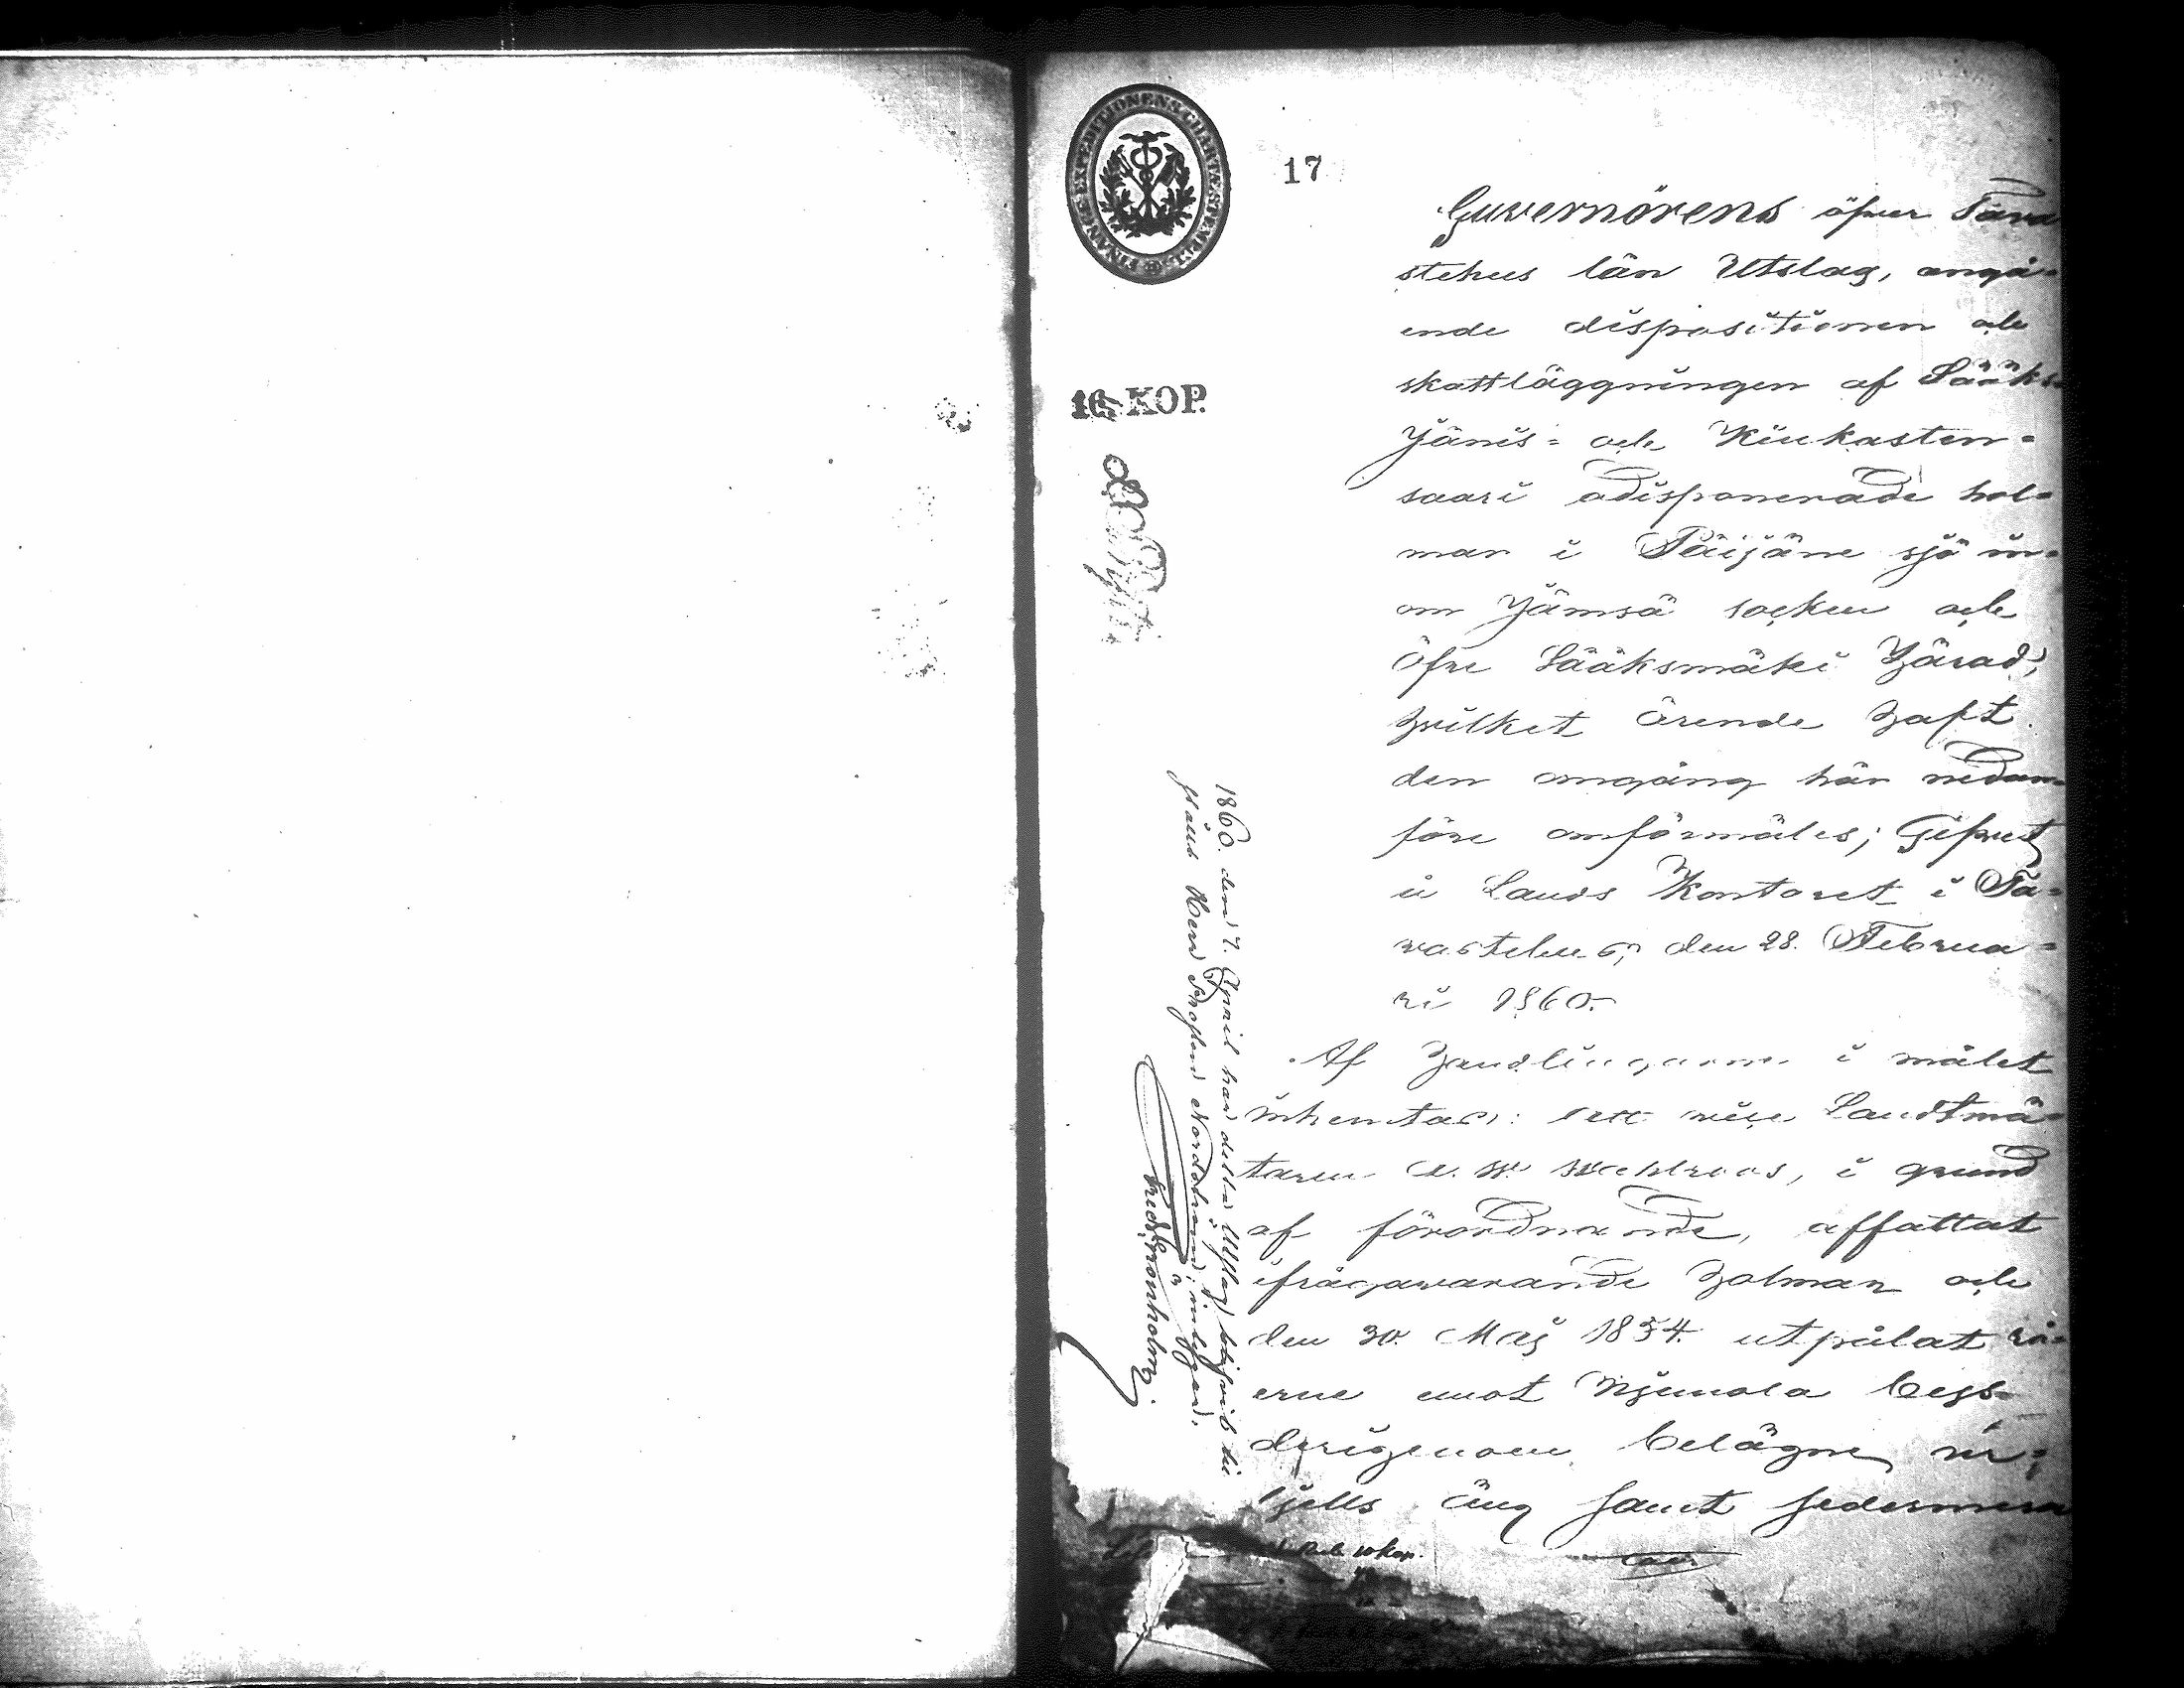 FINANCE EXPEDITIONENS CHARTÆ STEMPEL
17
16 KOP.
Guvernörens öfver Tava
stehus län Utslag, angå=
ende dispositionen och
skattläggningen af Sääks=
Jänis= och Kiukasten=
saari odisponerade hol=
mar i Päijäne sjö in=
om Jämsä socken och
Öfre Sääksmäki Härad,
hvilket ärende haft
den omgång här nedan=
före omförmäles; Gifvet
i Lands Kontoret i Ta=
vastehus, den 28. Februa=
ri 1860.
Af handlingarne i målet
inhemtas: att vice Landtmä=
taren
i grund
af förordnande, affattat
ifrågavarande holmar och
den 30. Maj 1834. utpålat rå=
erne emot
derigenom belägne
äng samt sedermera
1860. den 7. April har detta Utslag blifvit
Herr Nordstrand
10 kop.